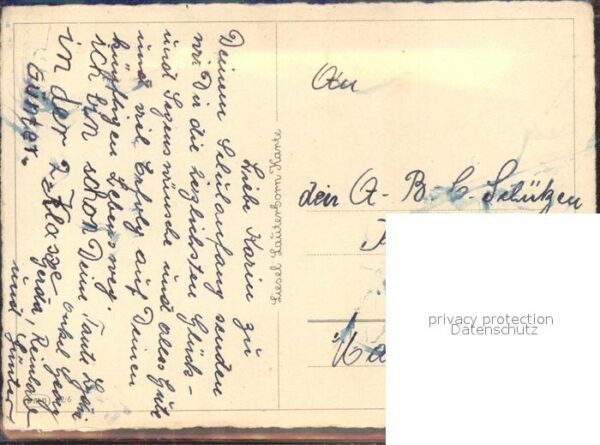 Liebe Karin zu
Deinem Schulanfang senden
wir Dir die herzlichsten Glück-
und Segenswünsche und alles Gute
und viel Erfolg auf Deinen
künftigen Lebensweg.
Deine Tante
Onkel Georg
Gerda, Reinhard
und Günter
ich bin schon
in der 2 Klasse
Günter.
Liesel Lauterborn Karte
An
den A-B-C-Schützen
privacy protection
Datenschutz